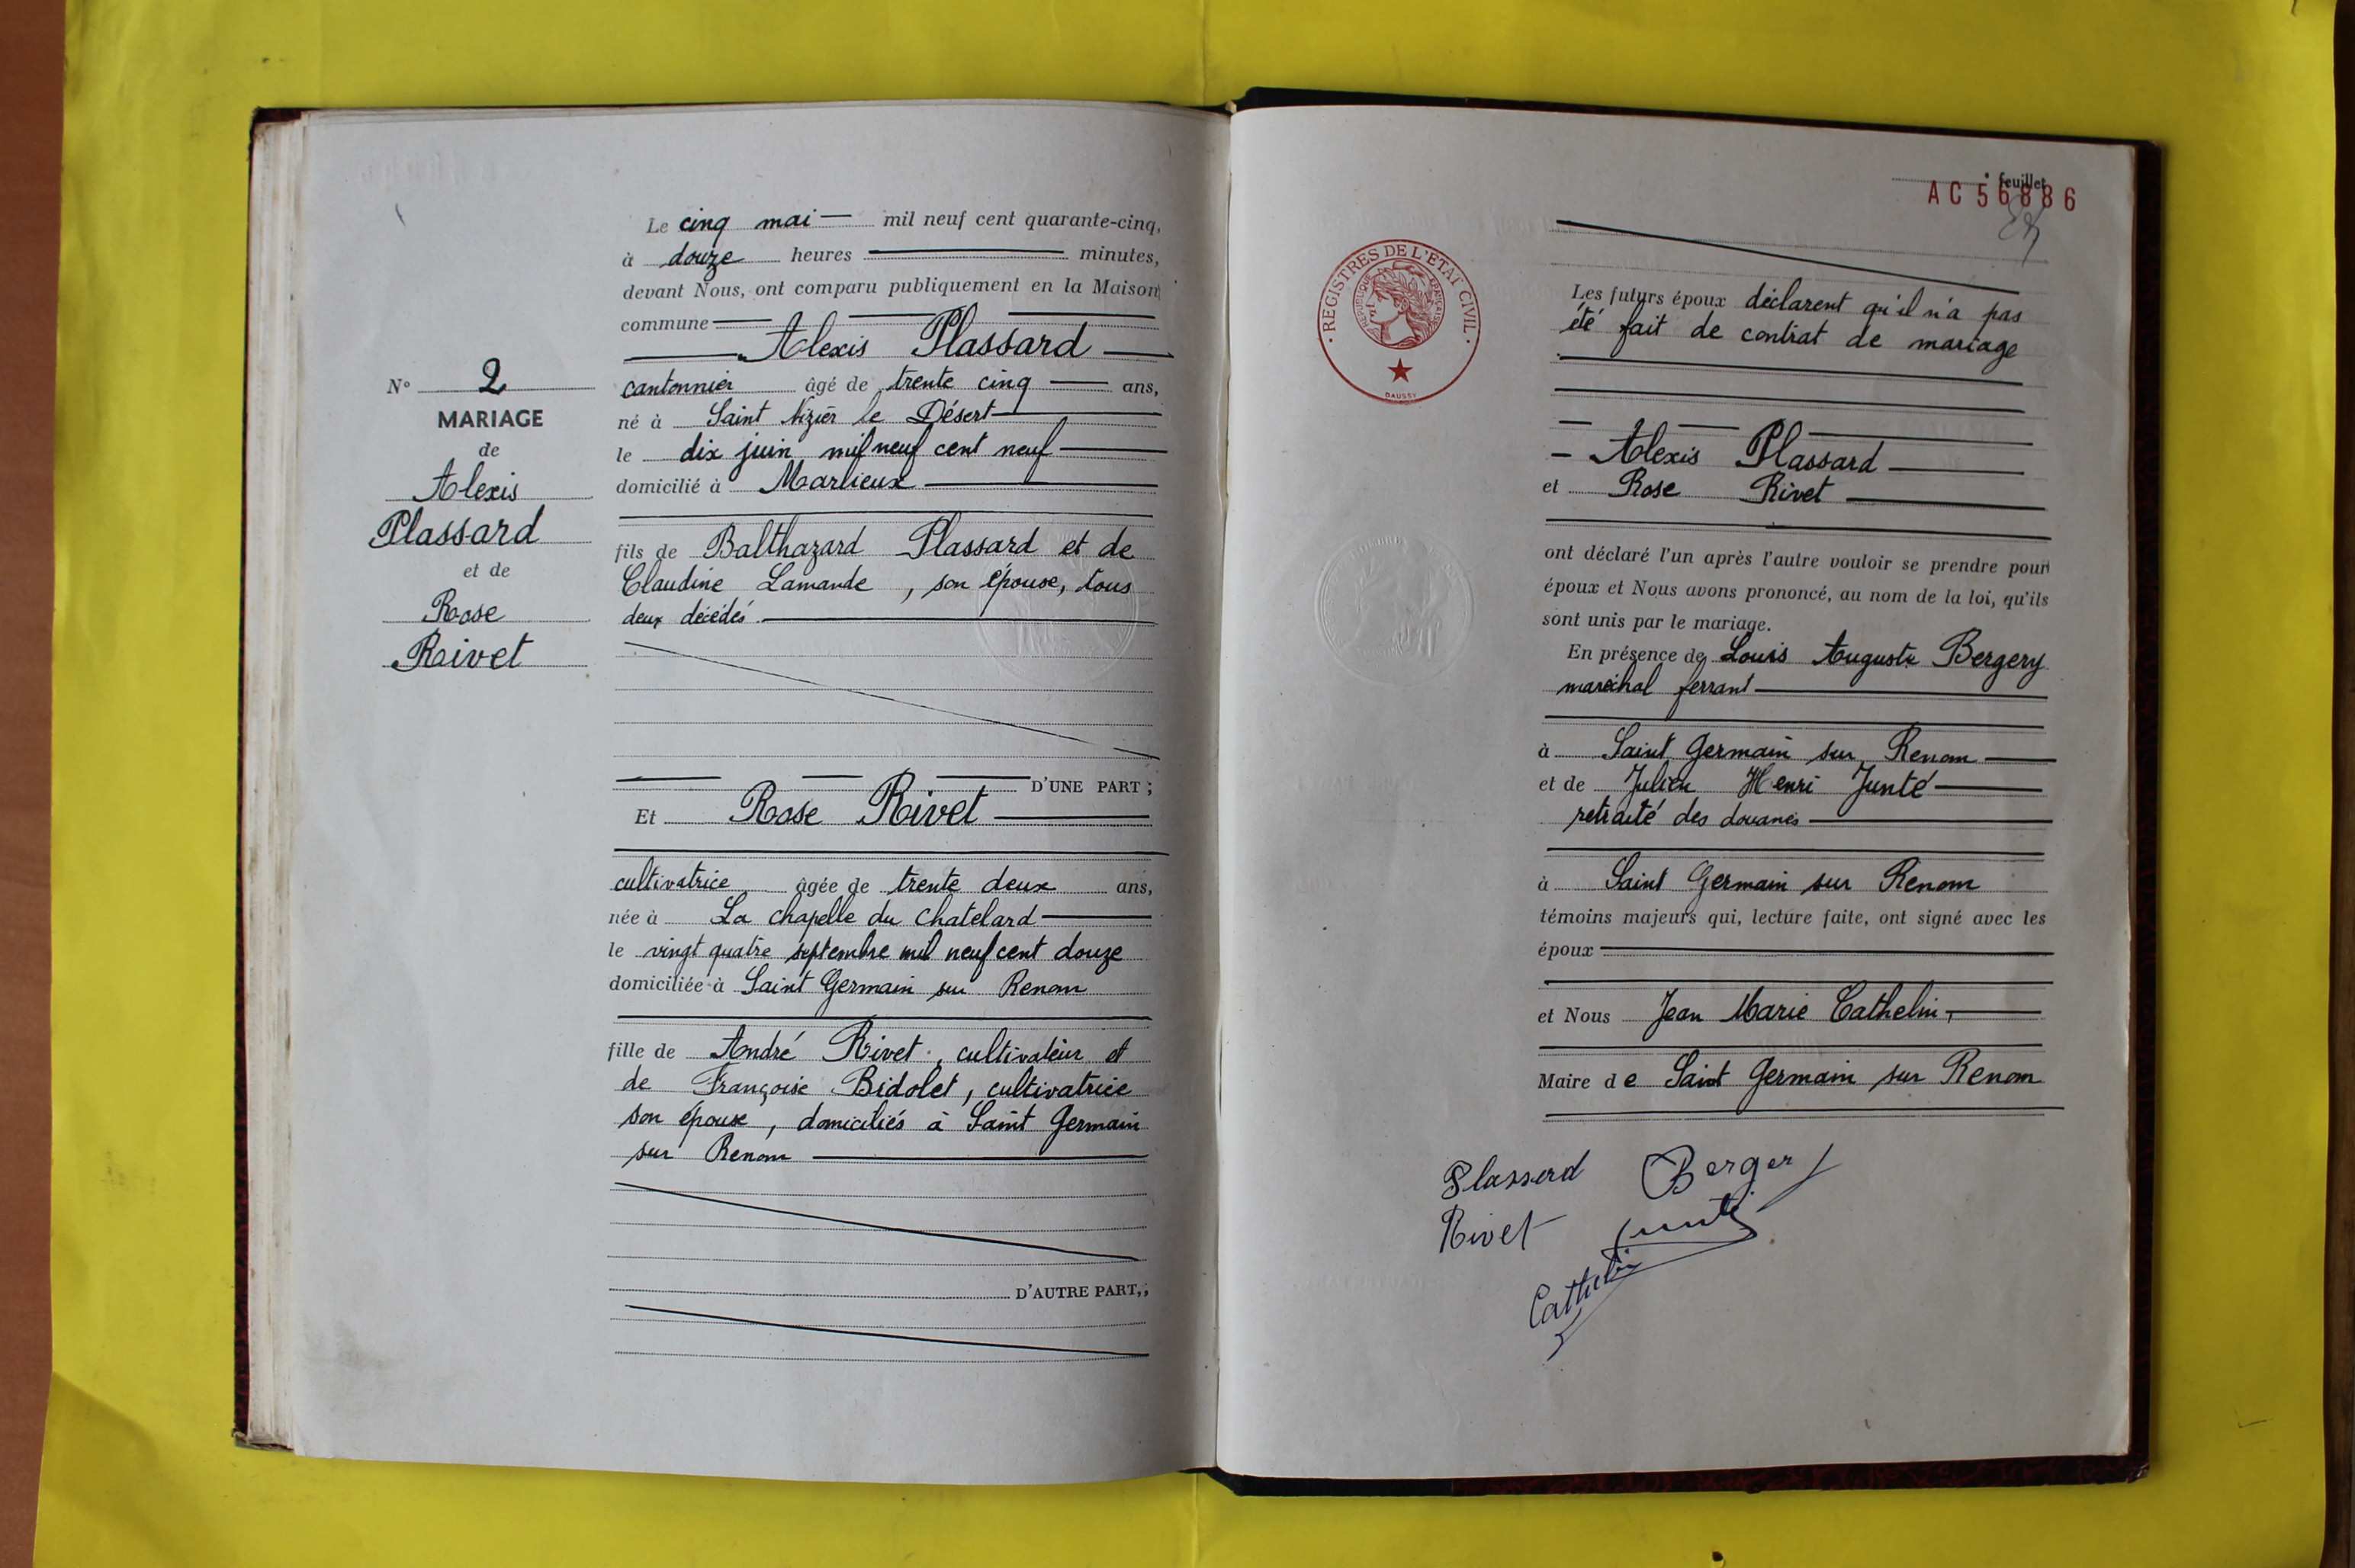 Le cinq mai mil neuf cent quarante-cinq,
à douze heures minutes,
devant Nous, ont comparu publiquement en la Maison
commune
Alexis Plassard
cantonnier âgé de trente cinq ans,
né à Saint Nizier le Désert
le dix juin mil neuf cent neuf
domicilié à Marlieux
fils de Balthazard Plassard et de
Claudine Lamande, son épouse, tous
deux décédés.
D'UNE PART ;
Et Rose Rivet
cultivatrice âgée de trente deux ans,
née à La chapelle du chatelard
le vingt quatre septembre mil neuf cent douze
domiciliée à Saint Germain sur Renom
fille de André Rivet, cultivateur et
de Françoise Bidolet, cultivatrice
son épouse, domiciliés à Saint Germain
sur Renom
D'AUTRE PART,;
N° 2
MARIAGE
de
Alexis
Plassard
et de
Rose
Rivet
feuillet
AC56886
REGISTRES DE L'ETAT CIVIL
REPUBLIQUE FRANCAISE
DAUSSY
Les futurs époux déclarent qu'il n'a pas
été fait de contrat de mariage
Alexis Plassard
et Rose Rivet
ont déclaré l'un après l'autre vouloir se prendre pour
époux et Nous avons prononcé, au nom de la loi, qu'ils
sont unis par le mariage.
En présence de Louis Auguste Bergery
maréchal ferrant
à Saint Germain sur Renom
et de Julien Henri Junté
retraité des douanes
à Saint Germain sur Renom
témoins majeurs qui, lecture faite, ont signé avec les
époux
et Nous Jean Marie Cathelin,
Maire de Saint Germain sur Renom
Plassard Bergery
Rivet Junté
Cathelin